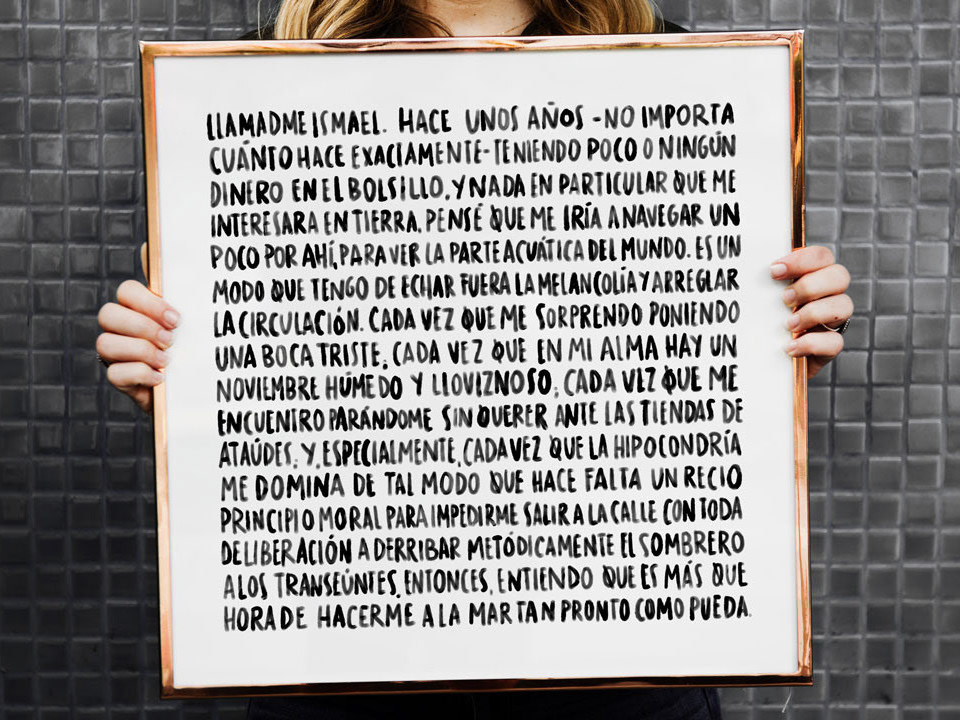 LLAMADME ISMAEL. HACE UNOS AÑOS -NO IMPORTA
CUÁNTO HACE EXACTAMENTE- TENIENDO POCO O NINGÚN
DINERO EN EL BOLSILLO, Y NADA EN PARTICULAR QUE ME
INTERESARA EN TIERRA, PENSÉ QUE ME IRÍA A NAVEGAR UN
POCO POR AHÍ, PARA VER LA PARTE ACUÁTICA DEL MUNDO. ES UN
MODO QUE TENGO DE ECHAR FUERA LA MELANCOLÍA Y ARREGLAR
LA CIRCULACIÓN. CADA VEZ QUE ME SORPRENDO PONIENDO
UNA BOCA TRISTE; CADA VEZ QUE EN MI ALMA HAY UN
NOVIEMBRE HÚMEDO Y LLOVIZNOSO; CADA VEZ QUE ME
ENCUENTRO PARÁNDOME SIN QUERER ANTE LAS TIENDAS DE
ATAÚDES; Y, ESPECIALMENTE, CADA VEZ QUE LA HIPOCONDRÍA
ME DOMINA DE TAL MODO QUE HACE FALTA UN RECIO
PRINCIPIO MORAL PARA IMPEDIRME SALIR A LA CALLE CON TODA
DELIBERACIÓN A DERRIBAR METÓDICAMENTE EL SOMBRERO
A LOS TRANSEÚNTES, ENTONCES, ENTIENDO QUE ES MÁS QUE
HORA DE HACERME A LA MAR TAN PRONTO COMO PUEDA.